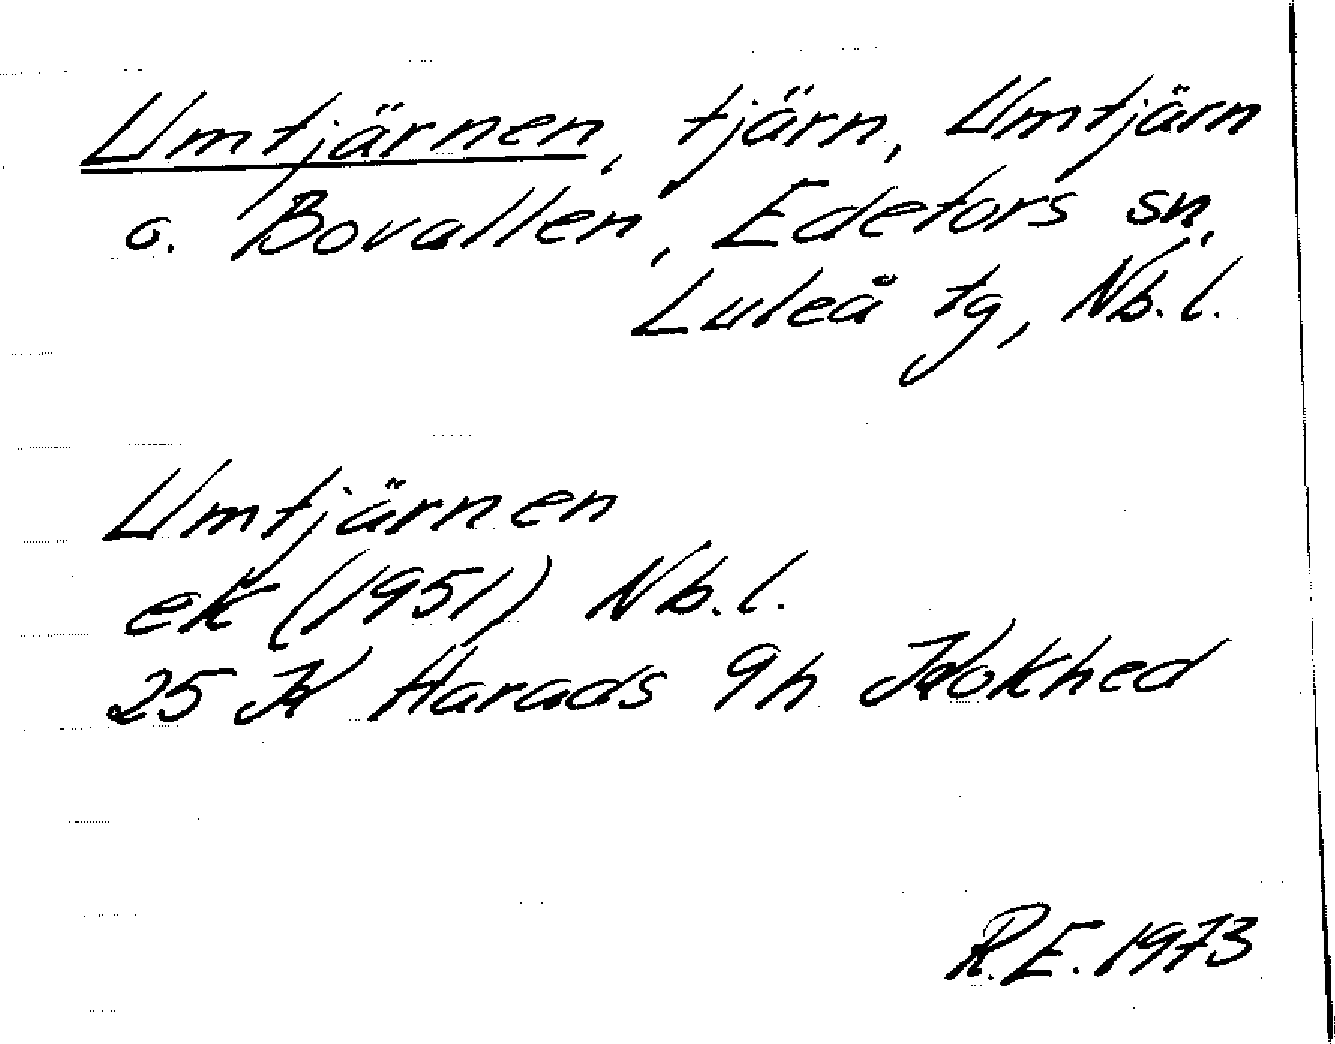 Umtjärnen, tjärn, Umtjärn
o. Bovallen, Edefors sn,
Luleå tg, Nb. l.
Umtjärnen
ek (1951) Nb. l.
25 K Harads 9h Klokhed
R.E. 1973